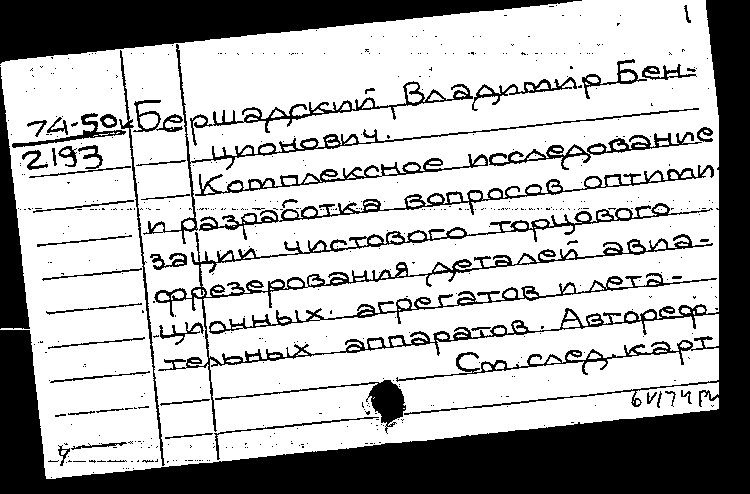 1
74-50к
2193
Бершадский, Владимир Бен-
ционович.
Комплексное исследование
и разработка вопросов оптими
зации чистового торцового
фрезерования деталей авиа-
ционных агрегатов и лета-
тельных аппаратов. Автореф.
См. след. карт